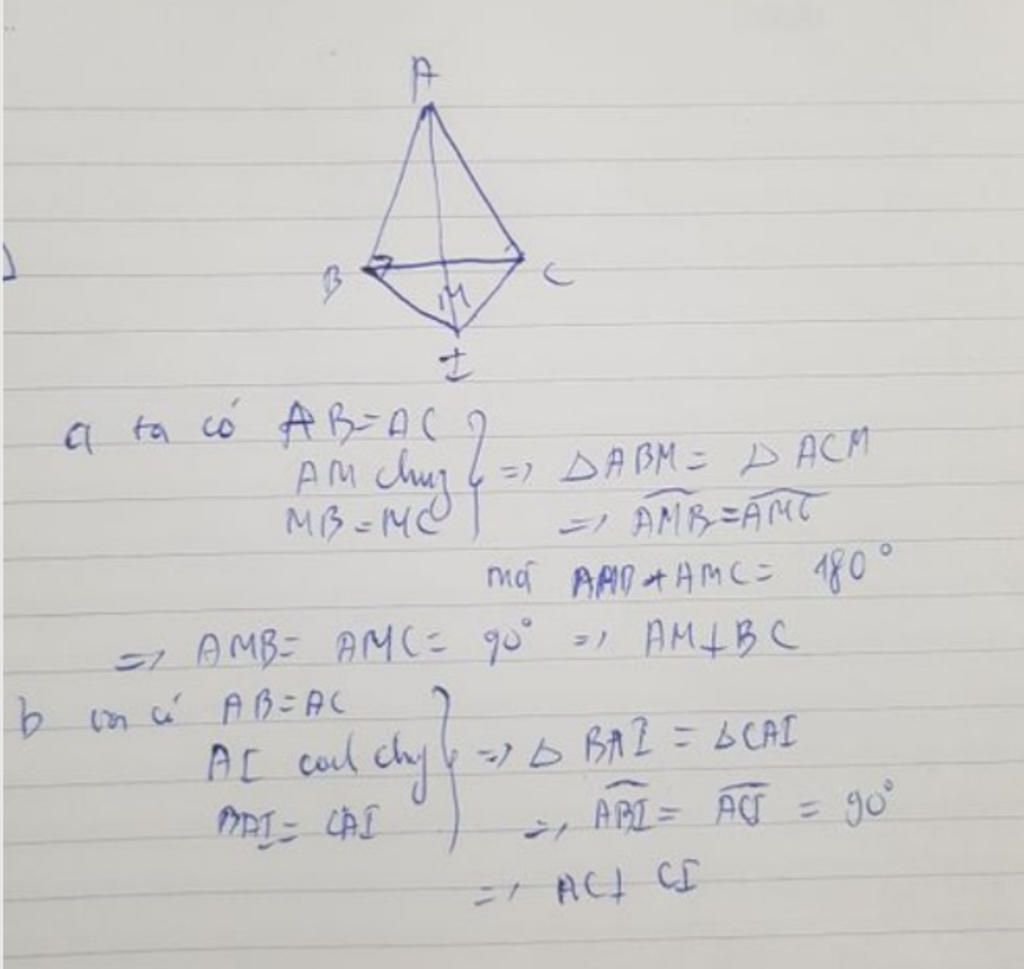 A
B
C
M
I
a ta có AB=AC
AM chung
MB=MC
=> △ABM = △ACM
=> AMB=AMC
mà AMB+AMC= 180°
=> AMB= AMC= 90° => AM⊥BC
b ta có AB=AC
AI chung
BAI= CAI
=> △ BAI = △CAI
=> ABI= ACI = 90°
=> AC⊥ CI